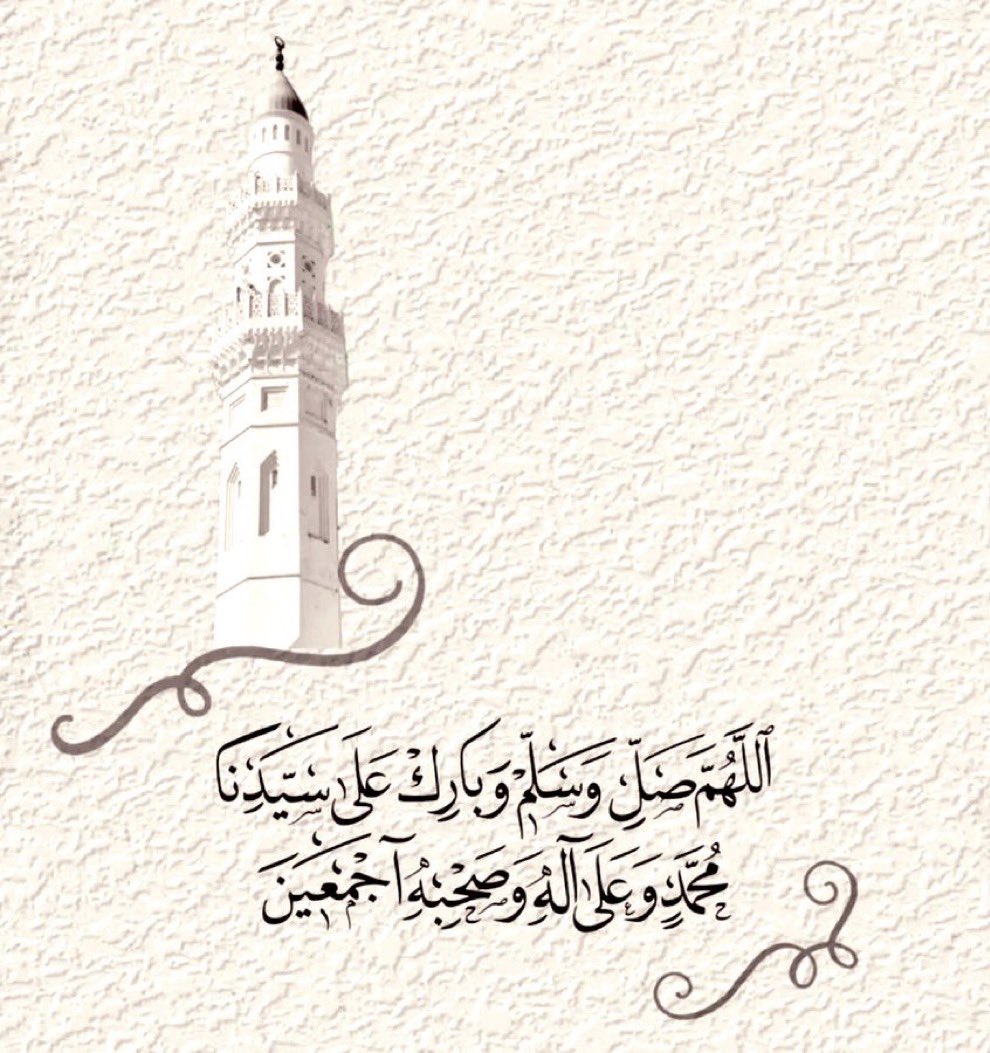 ٱللَّهُمَّ صَلِّ وَسَلِّمْ وَبَارِكْ عَلَىٰ سَيِّدِنَا
مُحَمَّدٍ وَعَلَىٰ آلِهِ وَصَحْبِهِ أَجْمَعِينَ